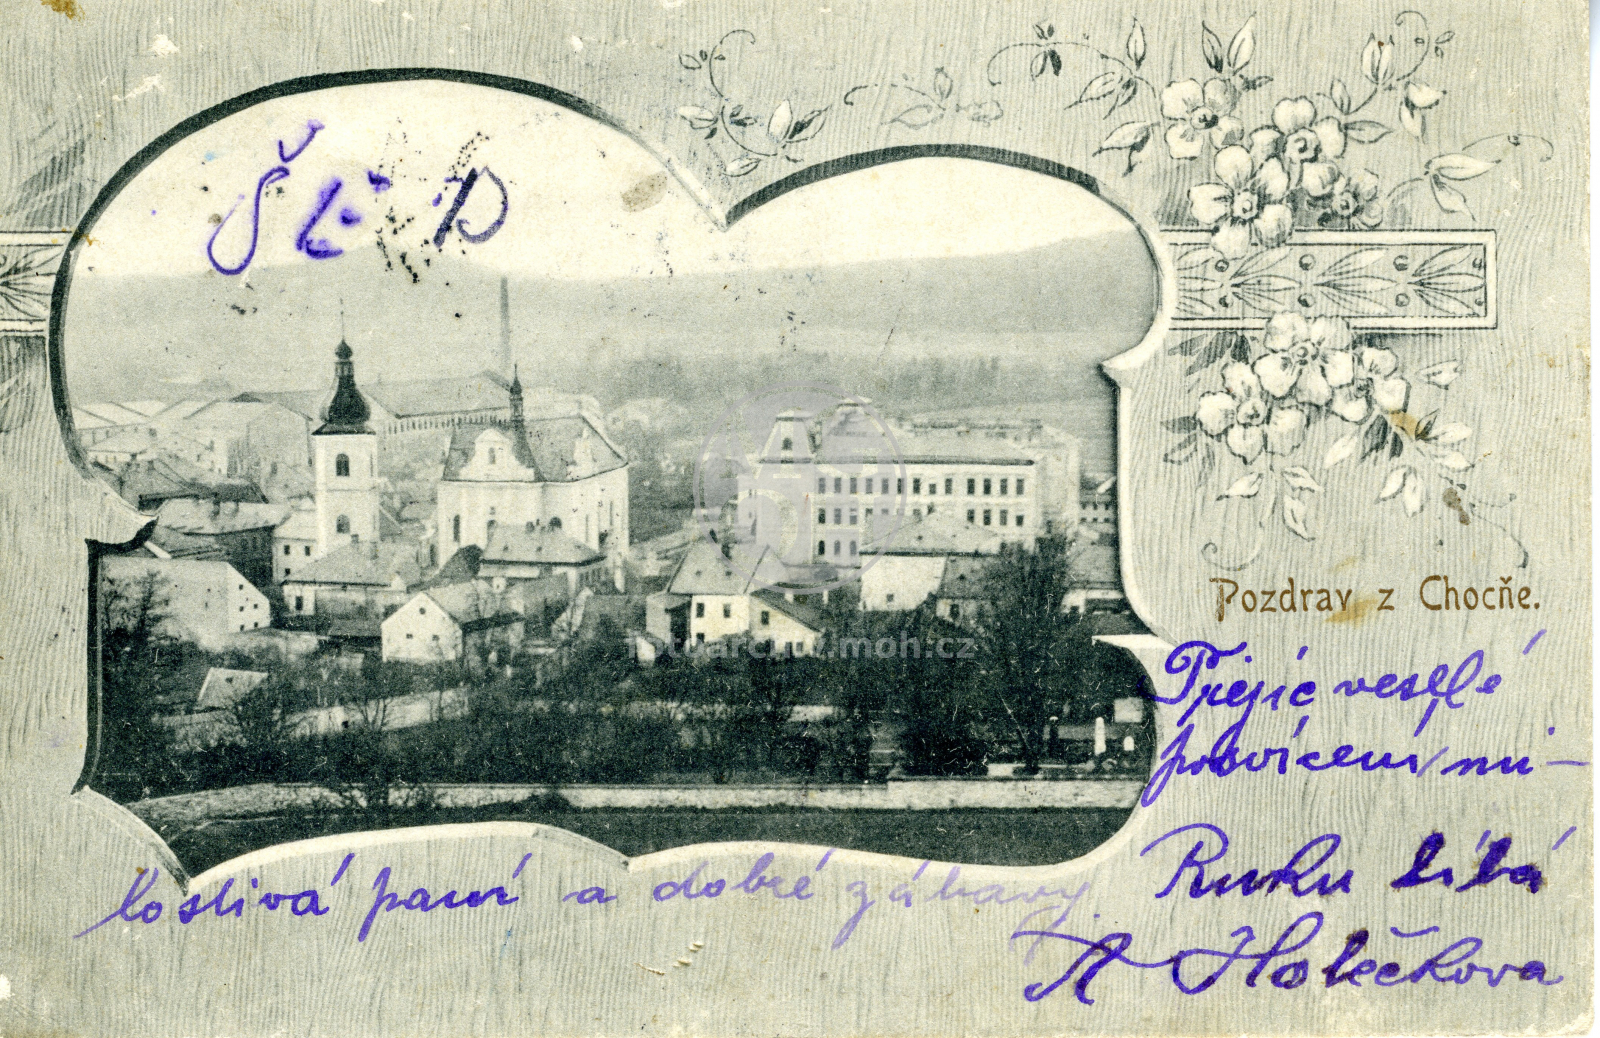 Pozdrav z Chocňe.
Přejíc veselé
posvícení, mi-
lostivá paní a dobré zábavy
Ruku líbá
A Holečkova
fotoarchiv.moh.cz